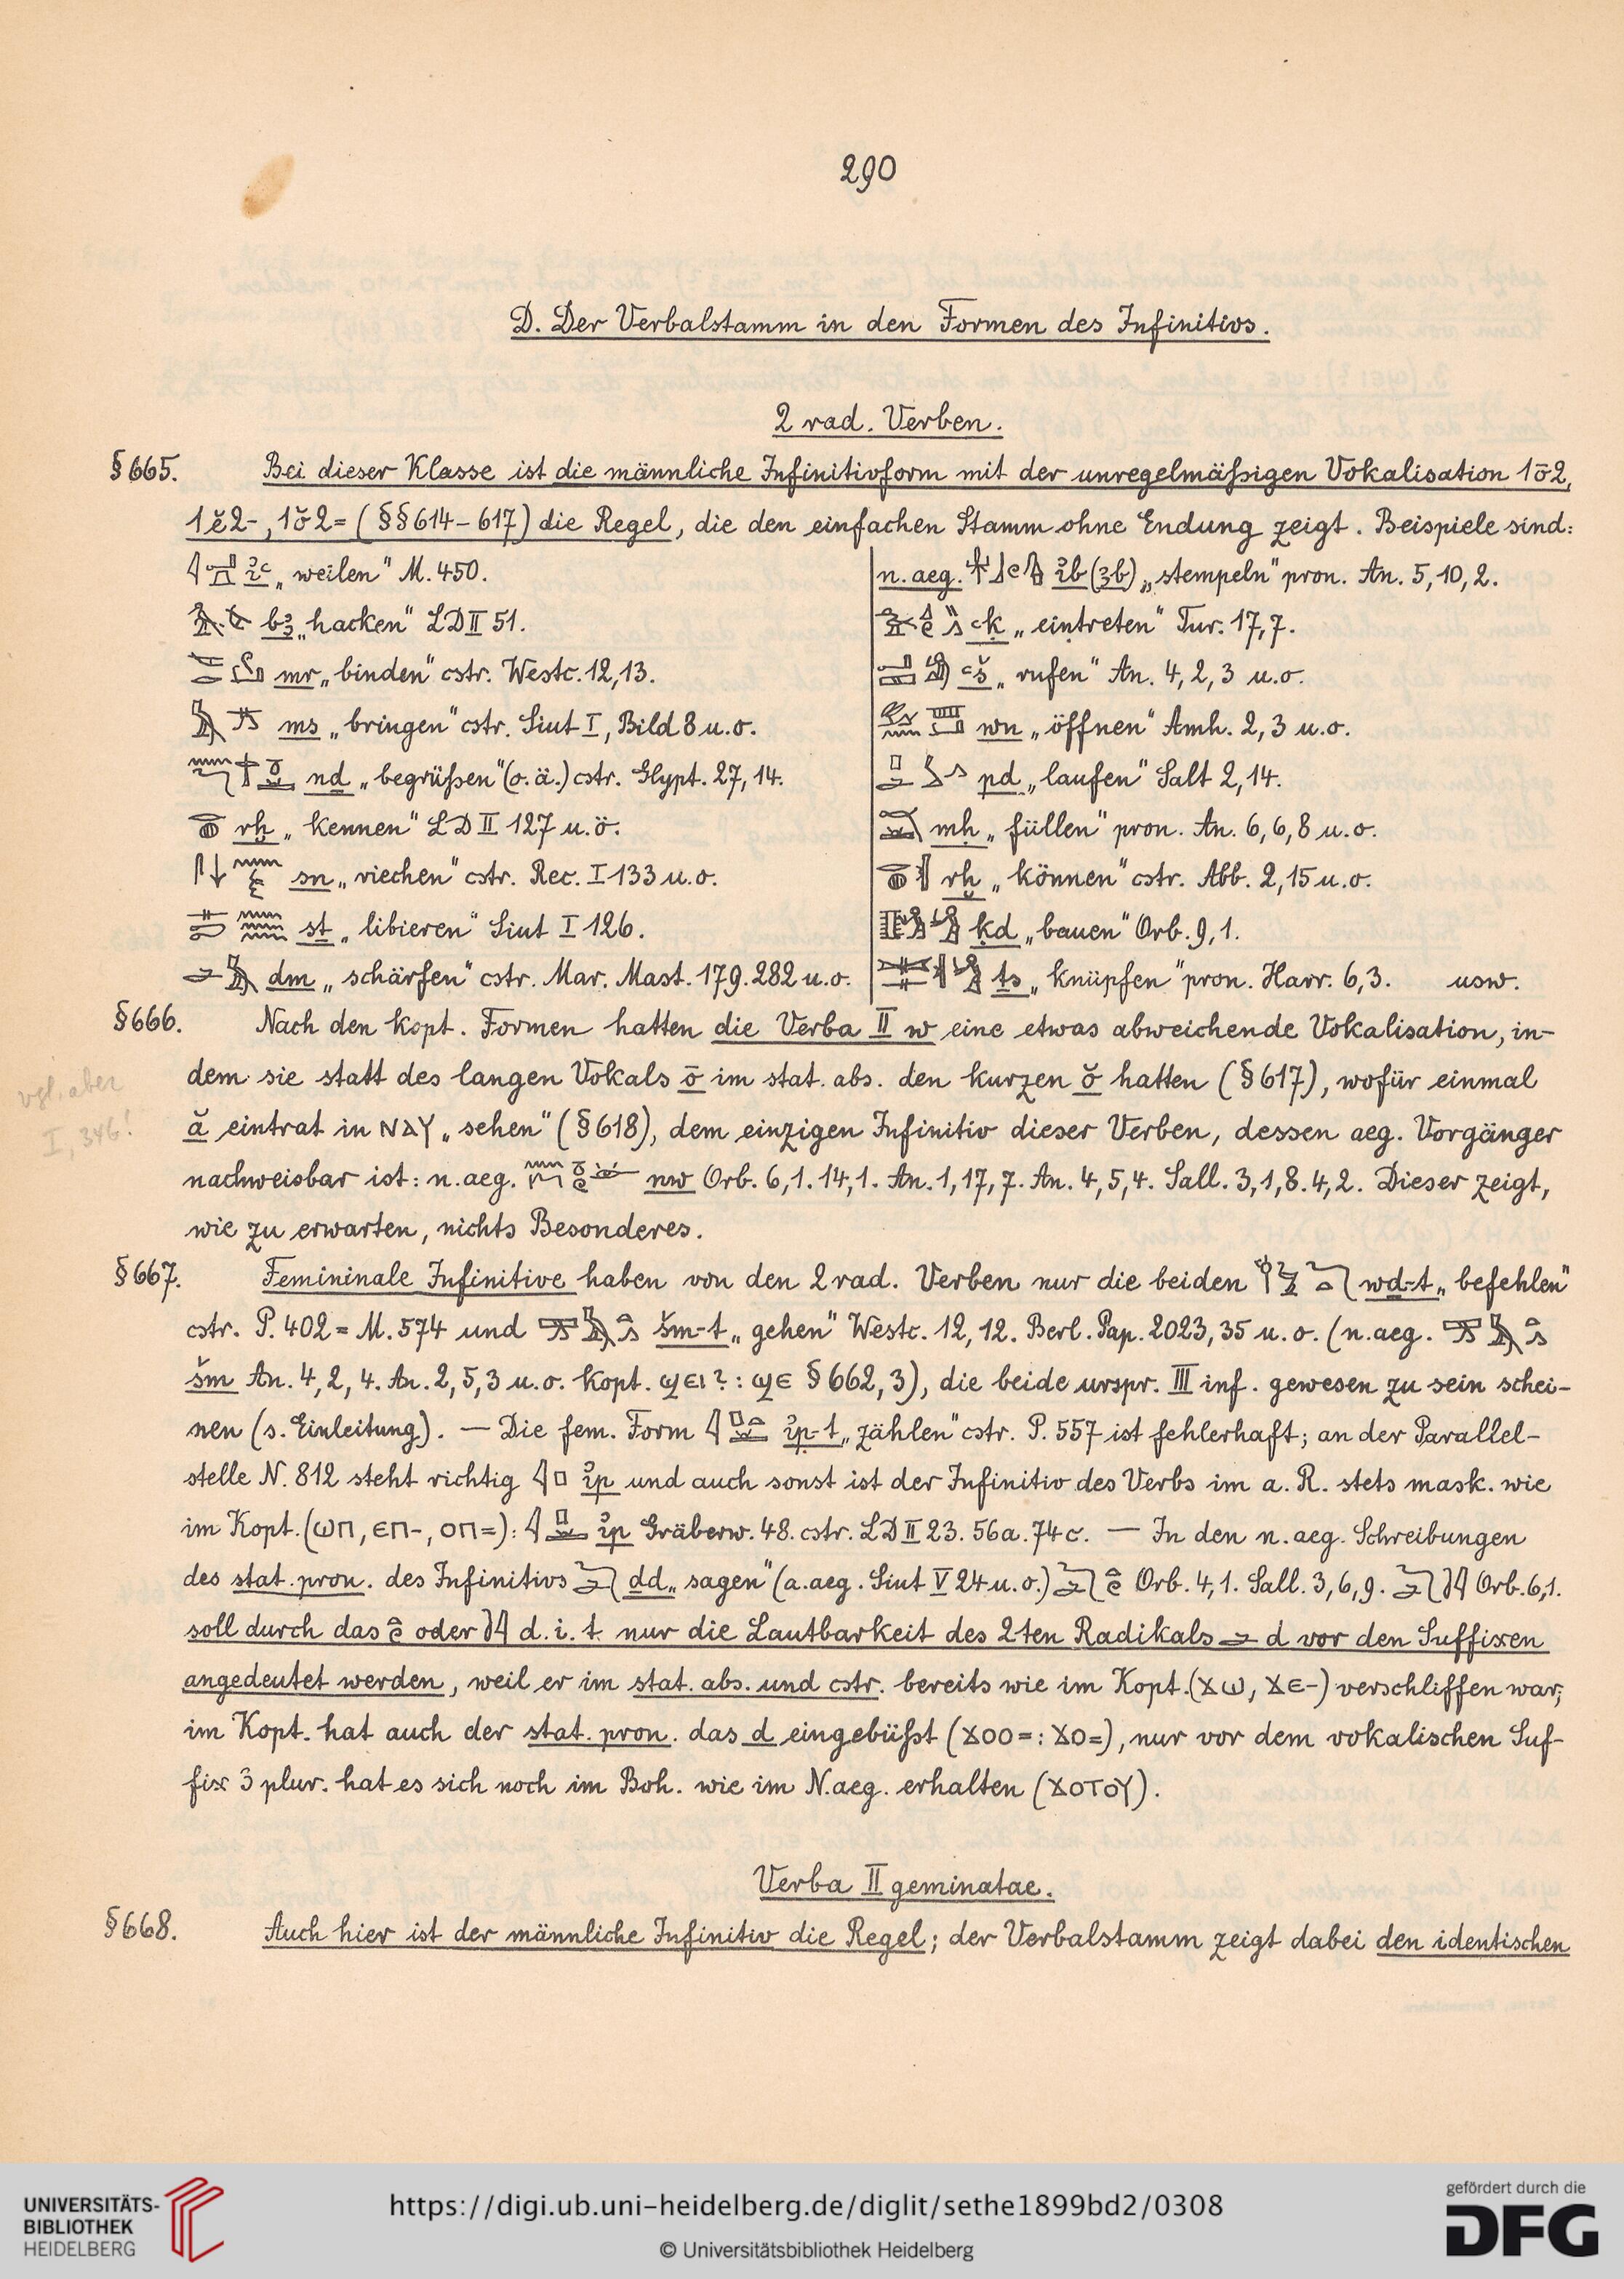 290
D. Der Verbalstamm in den Formen des Infinitivs.
2 rad. Verben.
§ 665. Bei dieser Klasse ist die männliche Infinitivform mit der unregelmäßigen Vokalisation 1ō2,
1ĕ2-, 1ŏ2= (§§ 614-617) die Regel, die den einfachen Stamm ohne Endung zeigt. Beispiele sind:
„weilen" M. 450.
bꜣ „hacken" LD II 51.
mr „binden" cstr. Westc. 12,13.
ms „bringen" cstr. Siut I, Bild 8 u. o.
nḏ „begrüßen" (o. ä.) cstr. Glypt. 27, 14.
rḫ „kennen" LD II 127 u. ö.
sn „riechen" cstr. Rec. I 133 u. o.
st „libieren" Siut I 126.
dm „schärfen" cstr. Mar. Mast. 179. 282 u. o.
n. aeg. ꞽb (ꜣb) „stempeln" pron. An. 5, 10, 2.
ꜥḳ „eintreten" Tur. 17, 7.
ꜥš „rufen" An. 4, 2, 3 u. o.
wn „öffnen" Amh. 2, 3 u. o.
pd „laufen" Salt 2, 14.
mḥ „füllen" pron. An. 6, 6, 8 u. o.
rḫ „können" cstr. Abb. 2, 15 u. o.
ḳd „bauen" Orb. 9, 1.
ṯs „knüpfen" pron. Harr. 6, 3. usw.
§ 666. Nach den kopt. Formen hatten die Verba II w eine etwas abweichende Vokalisation, in-
dem sie statt des langen Vokals ō im stat. abs. den kurzen ŏ hatten (§ 617), wofür einmal
vgl. aber
I, 346!
ă eintrat in ⲛⲁⲩ „sehen" (§ 618), dem einzigen Infinitiv dieser Verben, dessen aeg. Vorgänger
nachweisbar ist: n. aeg. nw Orb. 6, 1. 14, 1. An. 1, 17, 7. An. 4, 5, 4. Sall. 3, 1, 8. 4, 2. Dieser zeigt,
wie zu erwarten, nichts Besonderes.
§ 667. Femininale Infinitive haben von den 2 rad. Verben nur die beiden wḏ-t „befehlen"
cstr. P. 402 = M. 574 und šm-t „gehen" Westc. 12, 12. Berl. Pap. 2023, 35 u. o. (n. aeg.
šm An. 4, 2, 4. An. 2, 5, 3 u. o. kopt. ϣⲉⲓ?: ϣⲉ § 662, 3), die beide urspr. III inf. gewesen zu sein schei-
nen (s. Einleitung). — Die fem. Form ꞽp-t „zählen" cstr. P. 557 ist fehlerhaft; an der Parallel-
stelle N. 812 steht richtig ꞽp und auch sonst ist der Infinitiv des Verbs im a. R. stets mask. wie
im Kopt. (ⲱⲡ, ⲉⲡ-, ⲟⲡ=): ꞽp Gräberw. 48. cstr. LD II 23. 56a. 74c. — In den n. aeg. Schreibungen
des stat. pron. des Infinitivs ḏd „sagen" (a. aeg. Siut V 24 u. o.) Orb. 4, 1. Sall. 3, 6, 9. Orb. 6, 1.
soll durch das oder d. i. t nur die Lautbarkeit des 2ten Radikals d vor den Suffixen
angedeutet werden, weil er im stat. abs. und cstr. bereits wie im Kopt. (ϫⲱ, ϫⲉ-) verschliffen war;
im Kopt. hat auch der stat. pron. das d eingebüßt (ϫⲟⲟ=: ϫⲟ=), nur vor dem vokalischen Suf-
fix 3 plur. hat es sich noch im Boh. wie im N. aeg. erhalten (ϫⲟⲧⲟⲩ).
Verba II geminatae.
§ 668. Auch hier ist der männliche Infinitiv die Regel; der Verbalstamm zeigt dabei den identischen
UNIVERSITÄTS-
BIBLIOTHEK
HEIDELBERG
https://digi.ub.uni-heidelberg.de/diglit/sethe1899bd2/0308
© Universitätsbibliothek Heidelberg
gefördert durch die
DFG